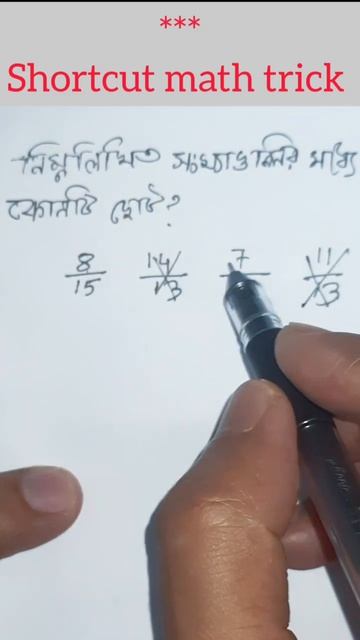 ***
Shortcut math trick
নিম্নলিখিত সংখ্যাগুলির মধ্যে
কোনটি ছোট?
8/15 14/13 7 11/13